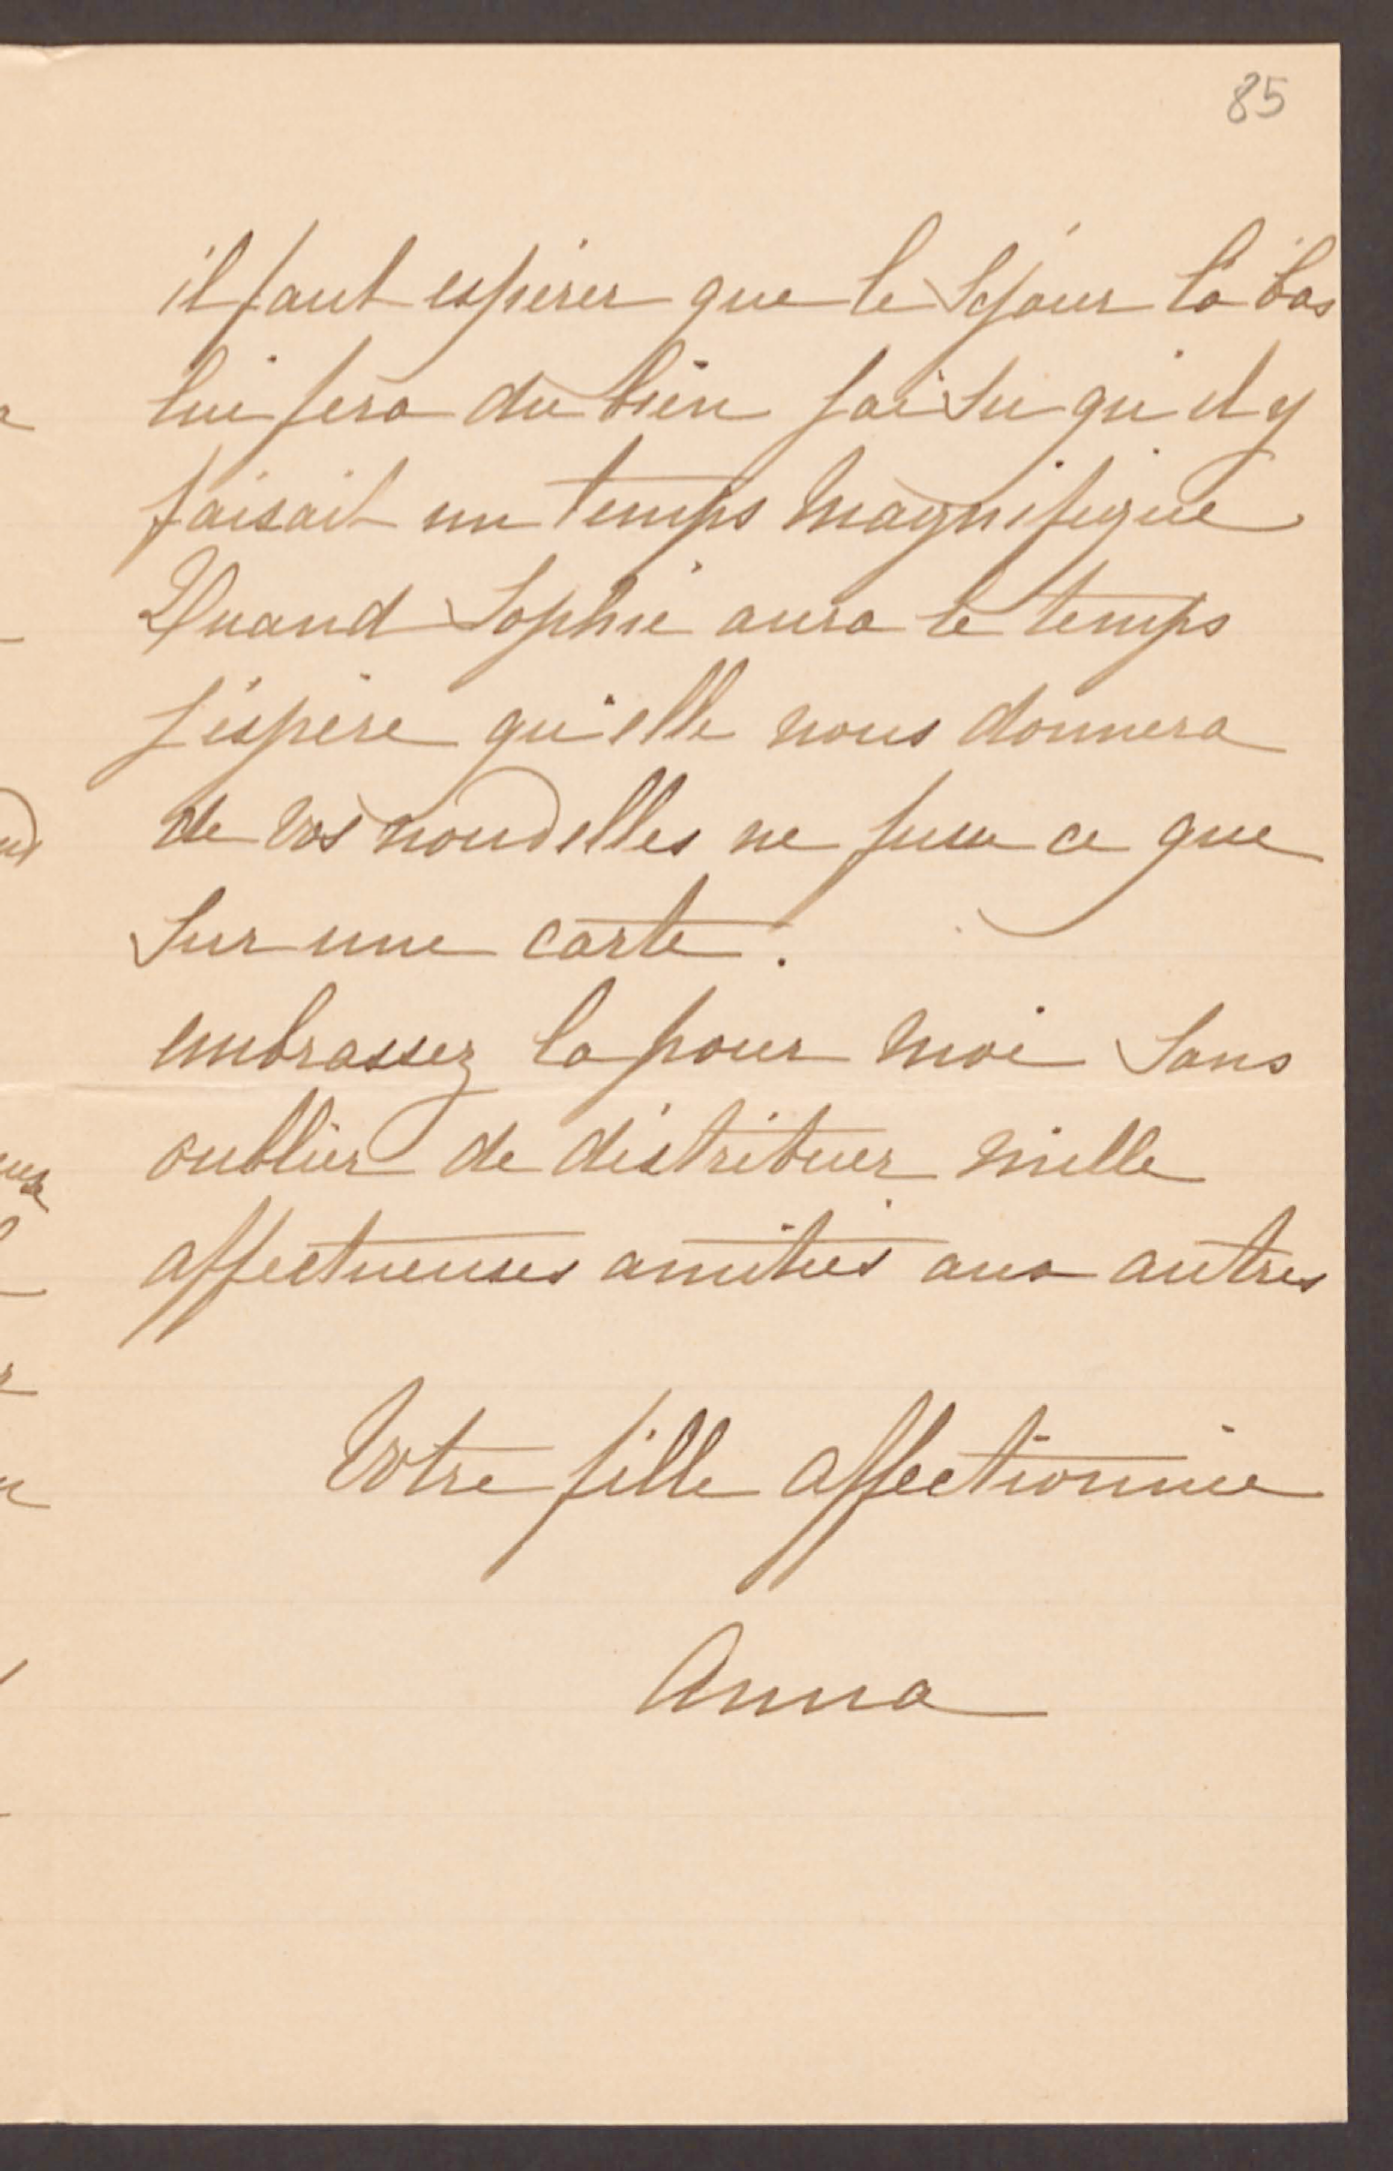 85
il faut espérer que le séjour là bas
lui fera du bien j'ai su qu'il y
faisait un temps magnifique
Quand Sophie aura le temps
j'éspère qu'elle nous donnera
de vos nouvelles ne fusse ce que
sur une carte.
embrassez la pour moi sans
oublier de distribuer mille
affectueuses amitiés aux autres
Votre fille affectionnée
Anna